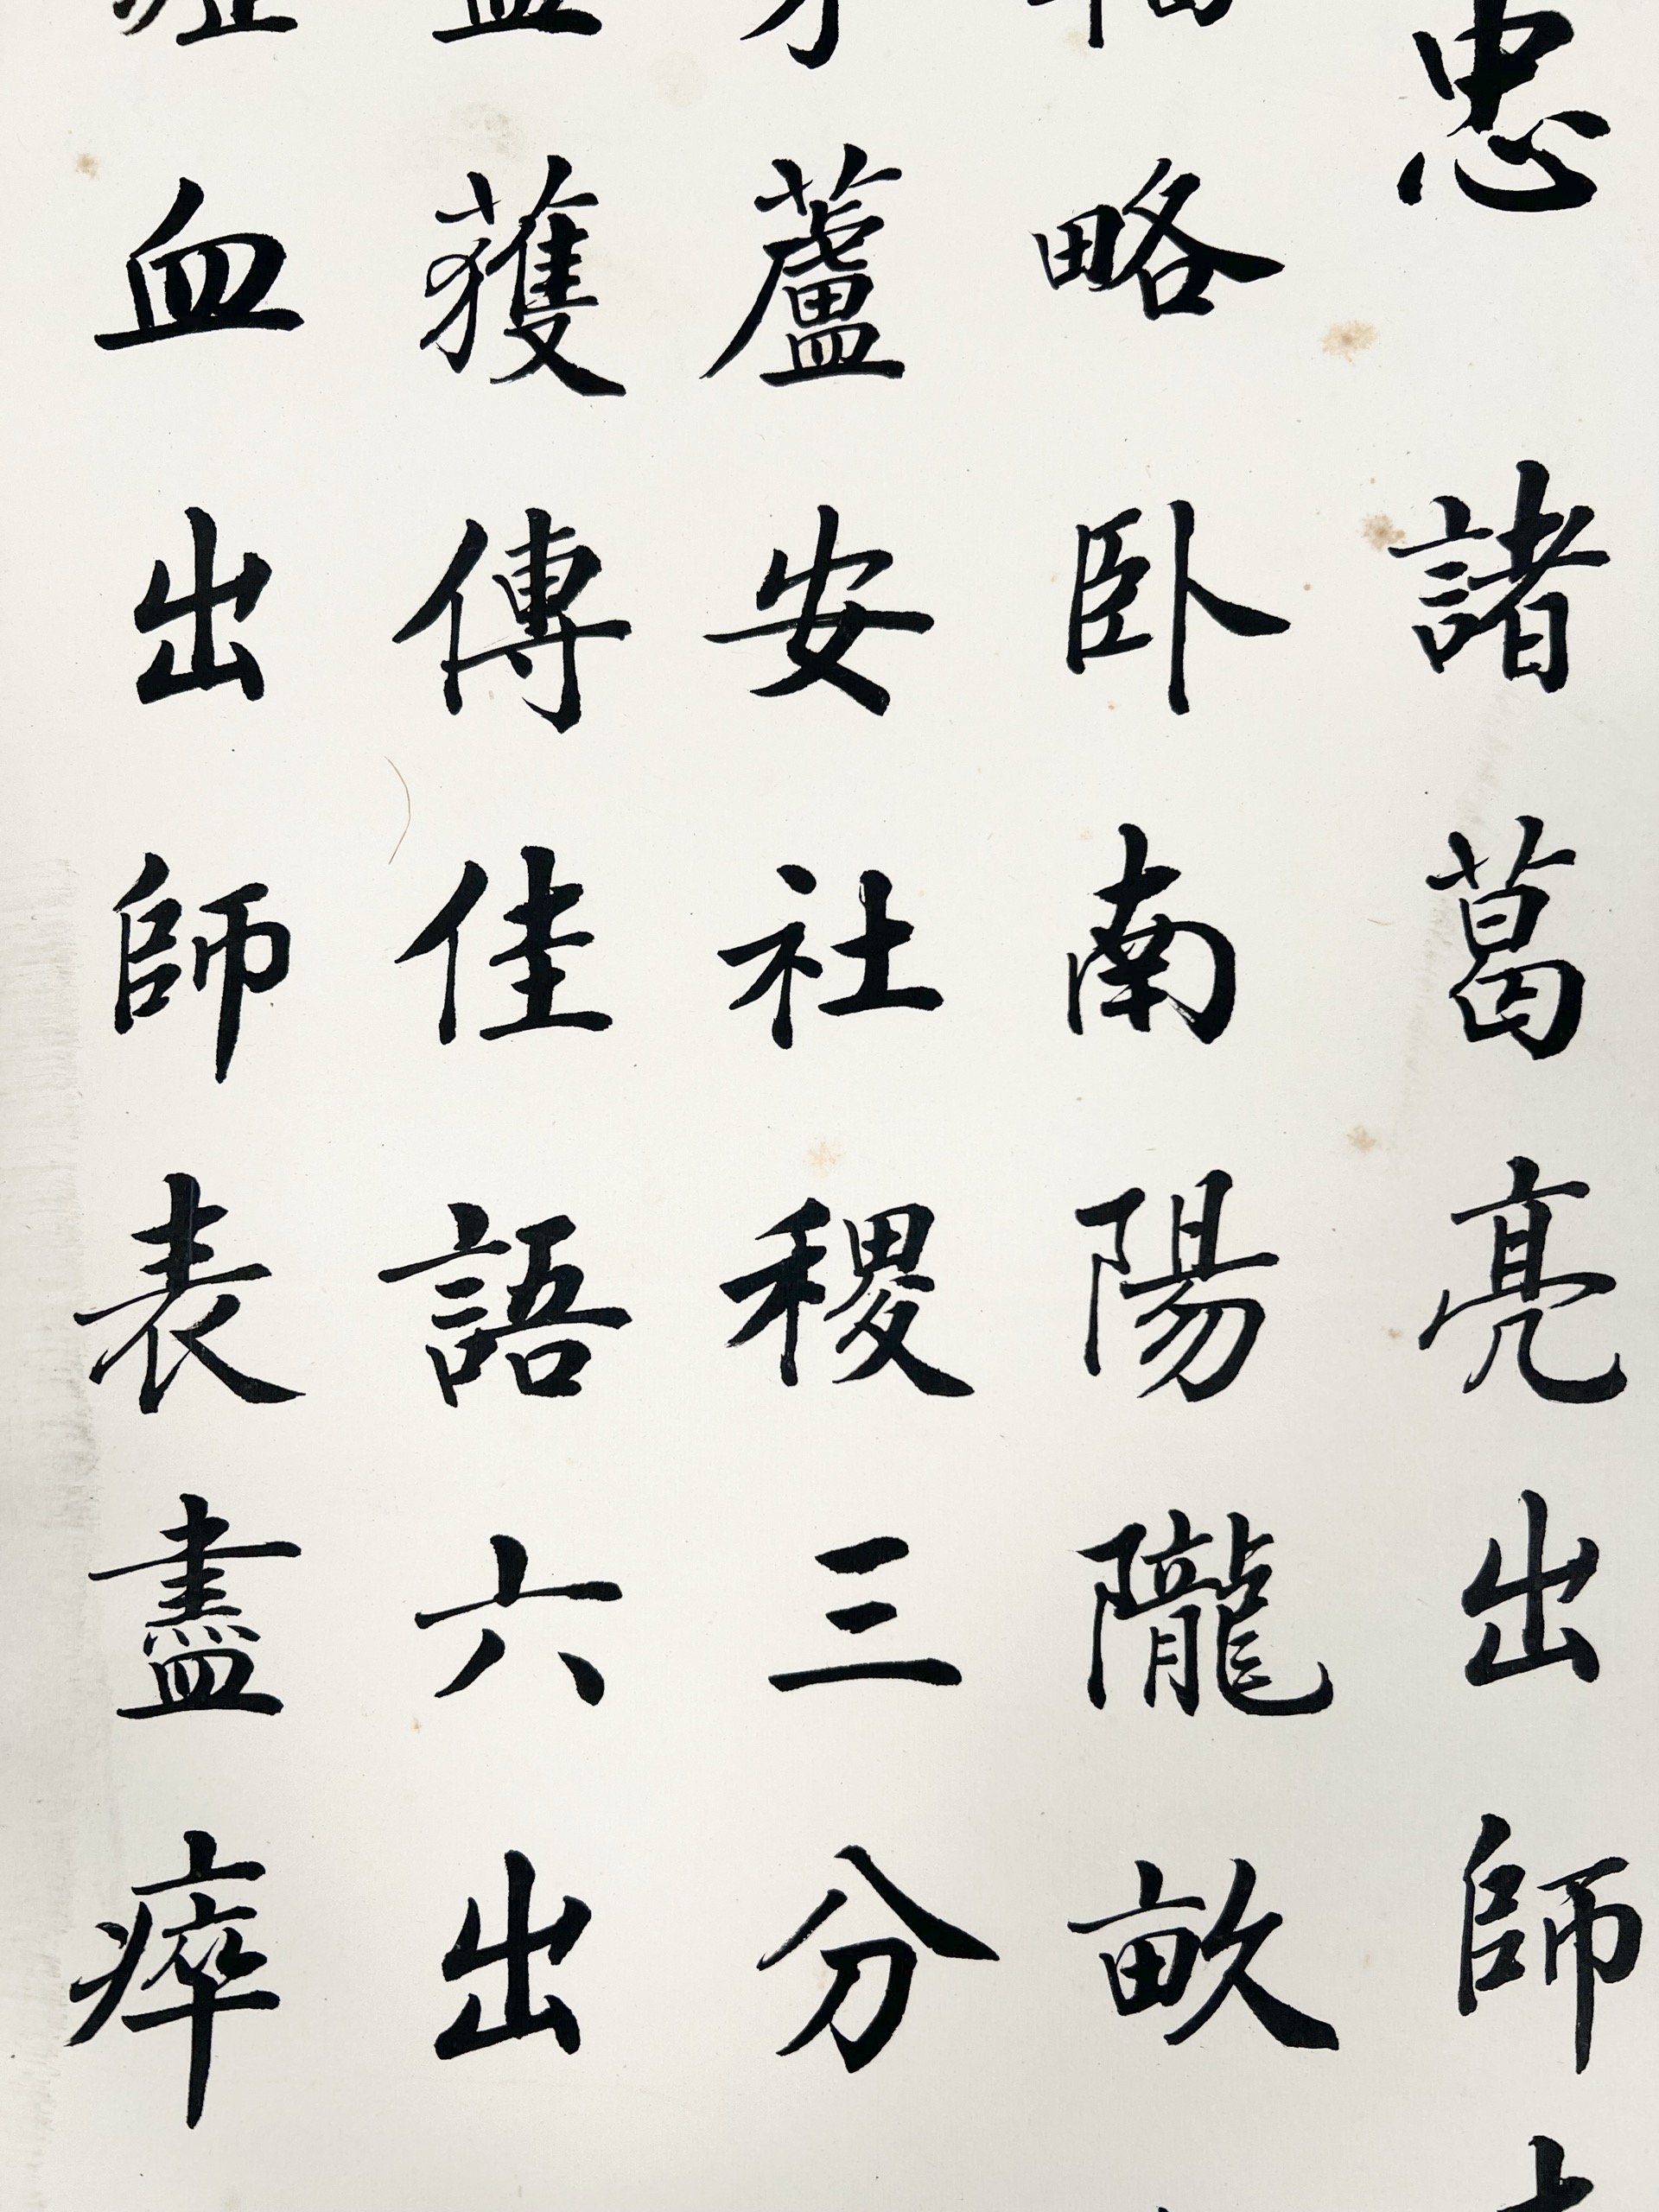 忠 諸葛亮出師
略卧南陽隴畝
蘆安社稷三分
獲傳佳語六出
血出師表盡瘁